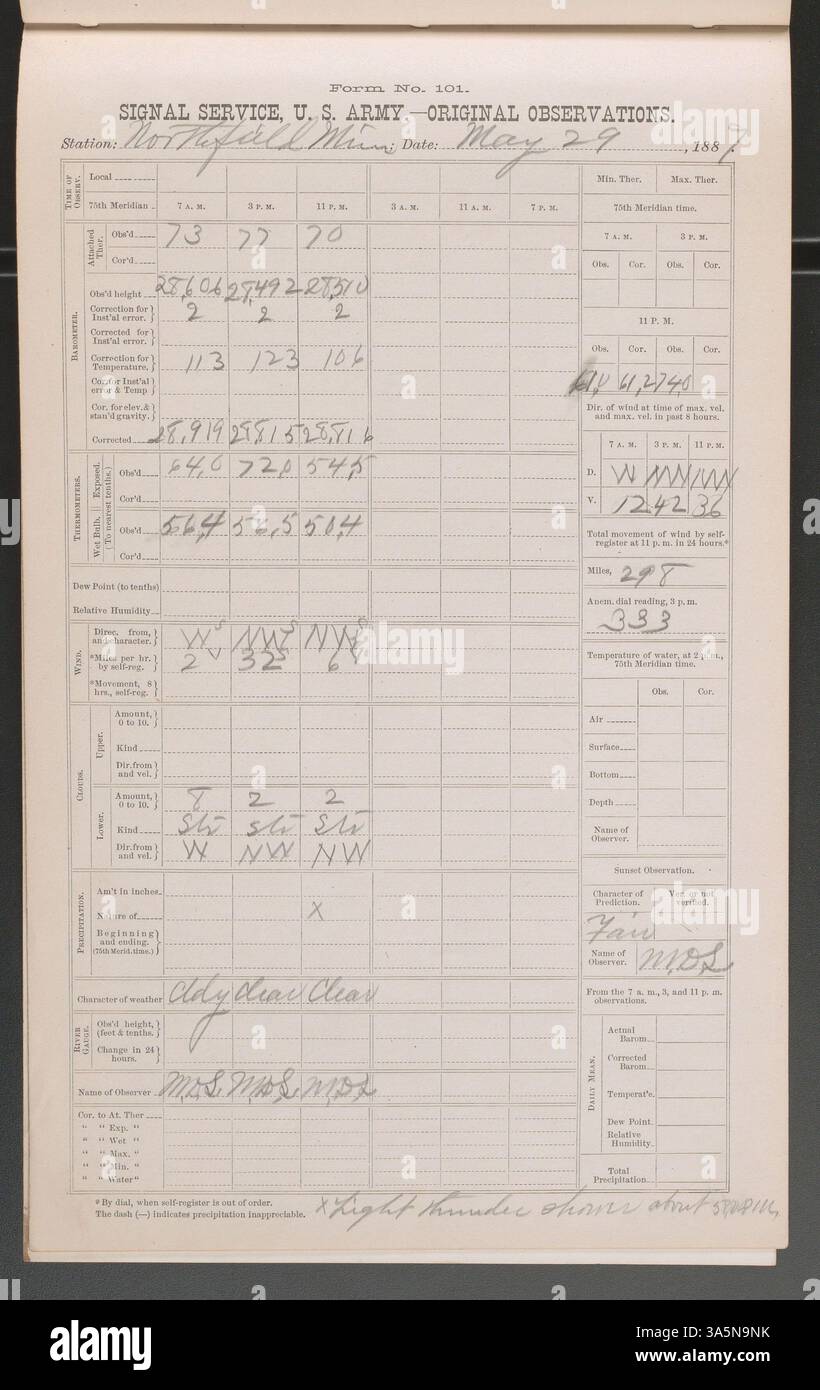 Form No. 101.
SIGNAL SERVICE, U. S. ARMY.—ORIGINAL OBSERVATIONS.
Station: Northfield Minn; Date: May 29, 1887.
TIME OF OBSERV.
Local
75th Meridian 7 A. M. 3 P. M. 11 P. M. 3 A. M. 11 A. M. 7 P. M.
Attached Ther.
Obs'd 73 77 70
Cor'd
BAROMETER.
Obs'd height 28,606 28,492 28,510
Correction for Inst'al error. 2 2 2
Corrected for Inst'al error.
Correction for Temperature. 113 123 106
Cor. for Inst'al error & Temp
Cor. for elev. & stan'd gravity.
Corrected 28,919 28815 28,816
THERMOMETERS.
(To nearest tenths.)
Exposed.
Obs'd 64,0 72,0 54,5
Cor'd
Wet Bulb.
Obs'd 56,4 56,5 50,4
Cor'd
Dew Point (to tenths)
Relative Humidity
WIND.
Direc. from, and character. W S NW S NW S
*Miles per hr. by self-reg. 2 32 6
*Movement, 8 hrs., self-reg.
CLOUDS.
Upper.
Amount, 0 to 10.
Kind
Dir. from and vel.
Lower.
Amount, 0 to 10. 8 2 2
Kind Str Str Str
Dir. from and vel. W NW NW
PRECIPITATION.
Am't in inches
Nature of X
Beginning and ending. (75th Merid. time.)
Character of weather Cldy Clear Clear
RIVER GAUGE.
Obs'd height, (feet & tenths.)
Change in 24 hours.
Name of Observer M.D.S. M.D.S. M.D.S.
Cor. to At. Ther
" " Exp. "
" " Wet "
" " Max. "
" " Min. "
" " Water "
Min. Ther. Max. Ther.
75th Meridian time.
7 A. M. 3 P. M.
Obs. Cor. Obs. Cor.
11 P. M.
Obs. Cor. Obs. Cor.
61,0 61,2 74,0
Dir. of wind at time of max. vel. and max. vel. in past 8 hours.
7 A. M. 3 P. M. 11 P. M.
D. W NW NW
V. 12 42 36
Total movement of wind by self-register at 11 p. m. in 24 hours.*
Miles, 298
Anem. dial reading, 3 p. m.
333
Temperature of water, at 2 p. m., 75th Meridian time.
Obs. Cor.
Air
Surface
Bottom
Depth
Name of Observer.
Sunset Observation.
Character of Prediction. Ver. or not verified.
Fair
Name of Observer. M.D.S.
From the 7 a. m., 3, and 11 p. m. observations.
DAILY MEAN.
Actual Barom.
Corrected Barom.
Temperat'e.
Dew Point.
Relative Humidity.
Total Precipitation.
* By dial, when self-register is out of order.
The dash (—) indicates precipitation inappreciable.
X Light thunder shower about
alamy
a
Image ID: 3A5N9NK
www.alamy.com